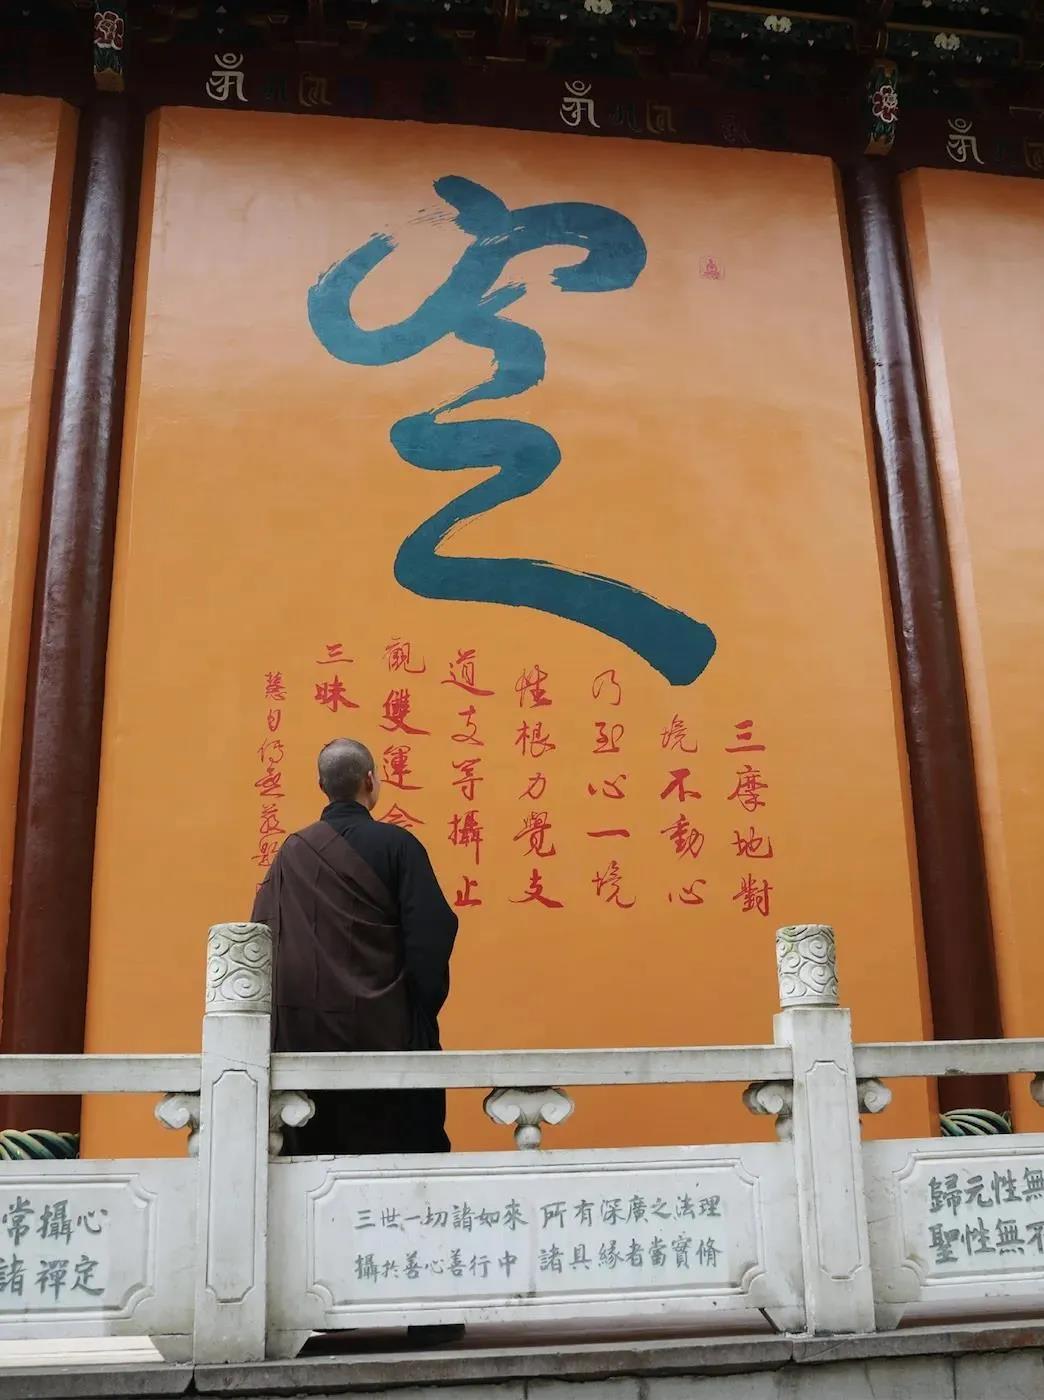 空
三摩地對
境不動心
乃至心一境
性根力覺支
道支等攝止
觀雙運念
三昧
常攝心
諸禪定
三世一切諸如來 所有深廣之法理
攝於善心善行中 諸具緣者當實脩
歸元性無
聖性無不